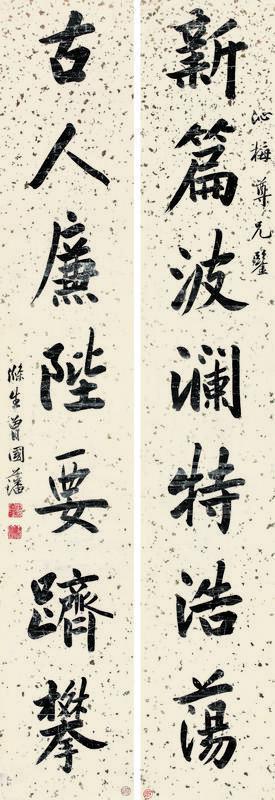 沁梅尊兄鑒
新篇波瀾特浩蕩
古人廉陛要躋攀
滌生曾國藩